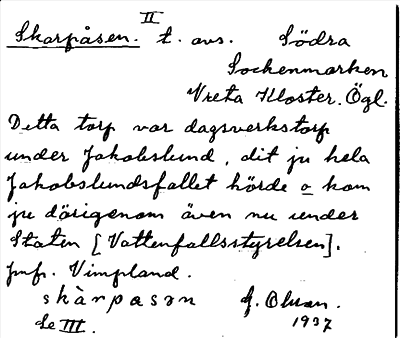 II
Skarpåsen. t. avs. Södra
Sockenmarken
Vreta Kloster. Ögl.
Detta torp var dagsverkstorp
under Jakobslund, dit ju hela
Jakobslundsfallet hörde o kom
ju därigenom även nu under
Staten [Vattenfallsstyrelsen].
Jmf. Vimpland.
skàrpasən G. Olson.
Le III. 1937